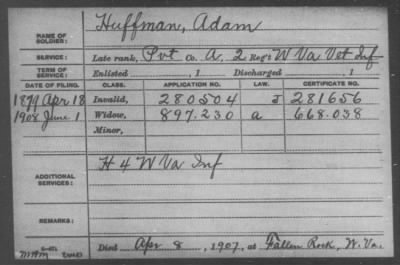 NAME OF SOLDIER: Huffman, Adam
SERVICE: Late rank, Pvt Co. A, 2 Reg't W Va Vet Inf
TERM OF SERVICE: Enlisted , 1 Discharged , 1
DATE OF FILING. CLASS. APPLICATION NO. LAW. CERTIFICATE NO.
1879 Apr 18 Invalid, 280504 J 281656
1908 June 1 Widow, 897.230 a 668.038
Minor,
ADDITIONAL SERVICES: H 4 W Va Inf
REMARKS:
Died Apr 8, 1907, at Fallen Rock, W. Va.